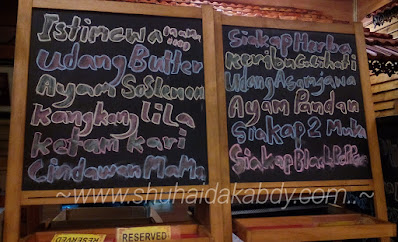 Istimewa
Udang Butter
Ayam Sos Lemon
Kangkung Lila
Ketam Kari
Cindawan Mama
Siakap Herba
Udang Asam Jawa
Ayam Pandan
Siakap 2 Muka
Siakap Black Pepper
~www.shuhaidakabdy.com~
RESERVED
RESERVED